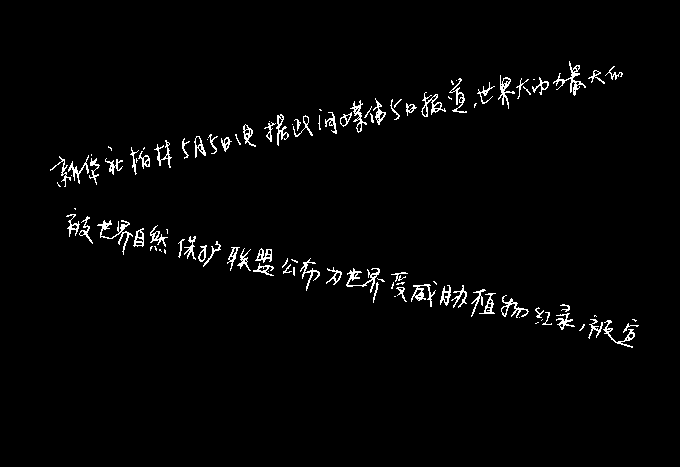 新华社柏林5月5日电 据此间媒体5日报道,世界大的力最大的
被世界自然保护联盟公布为世界受威胁植物红录,被宣